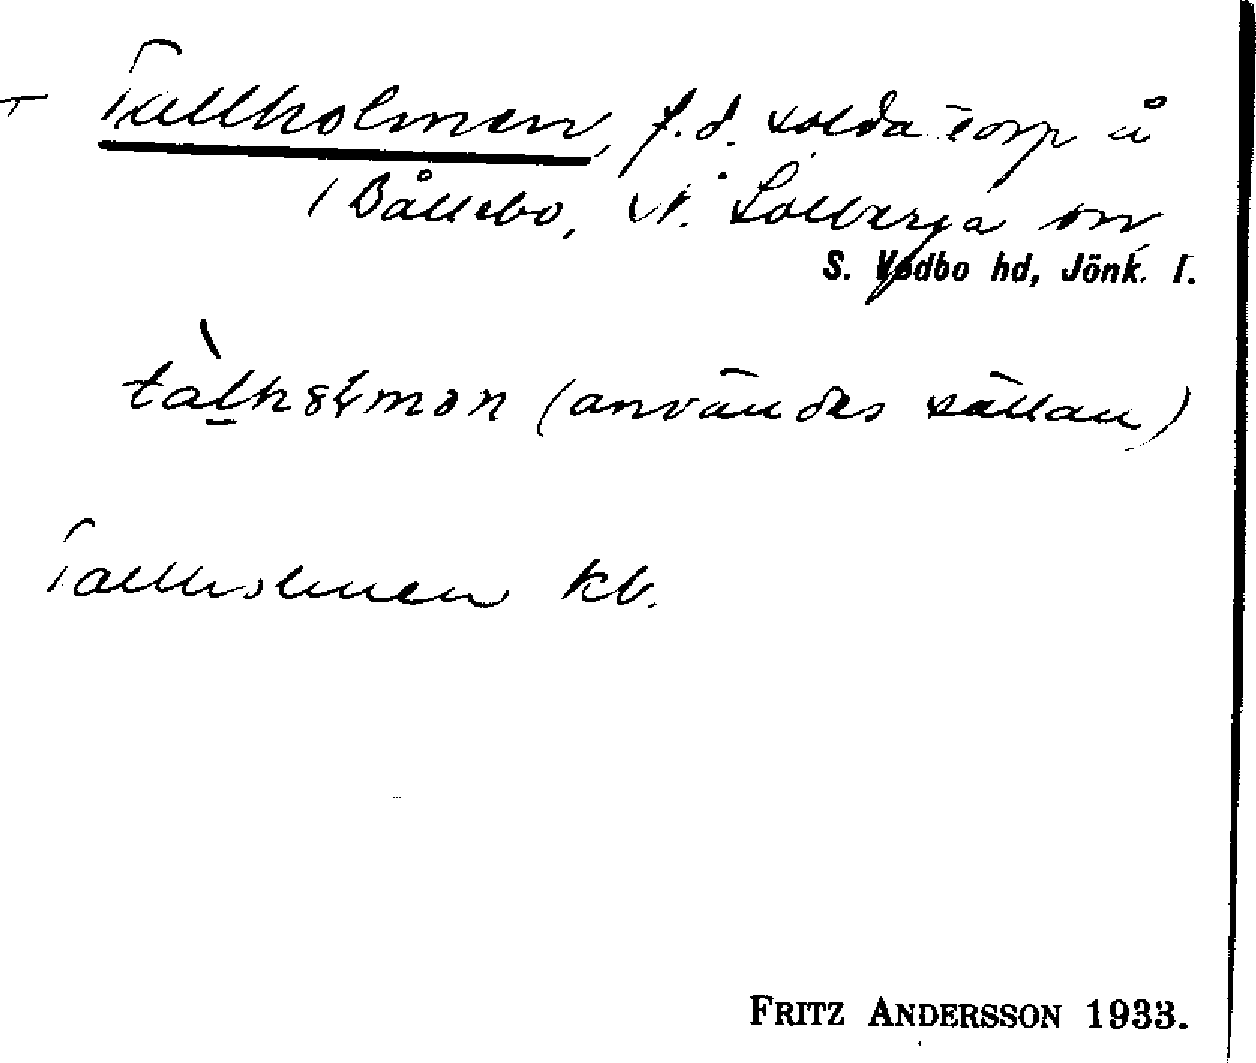 Tallholmen, f.d. soldattorp å
Bållebo, N. Solberga sn
S. Vedbo hd, Jönk. l.
(användes sällan)
Tallholmen kb.
FRITZ ANDERSSON 1933.